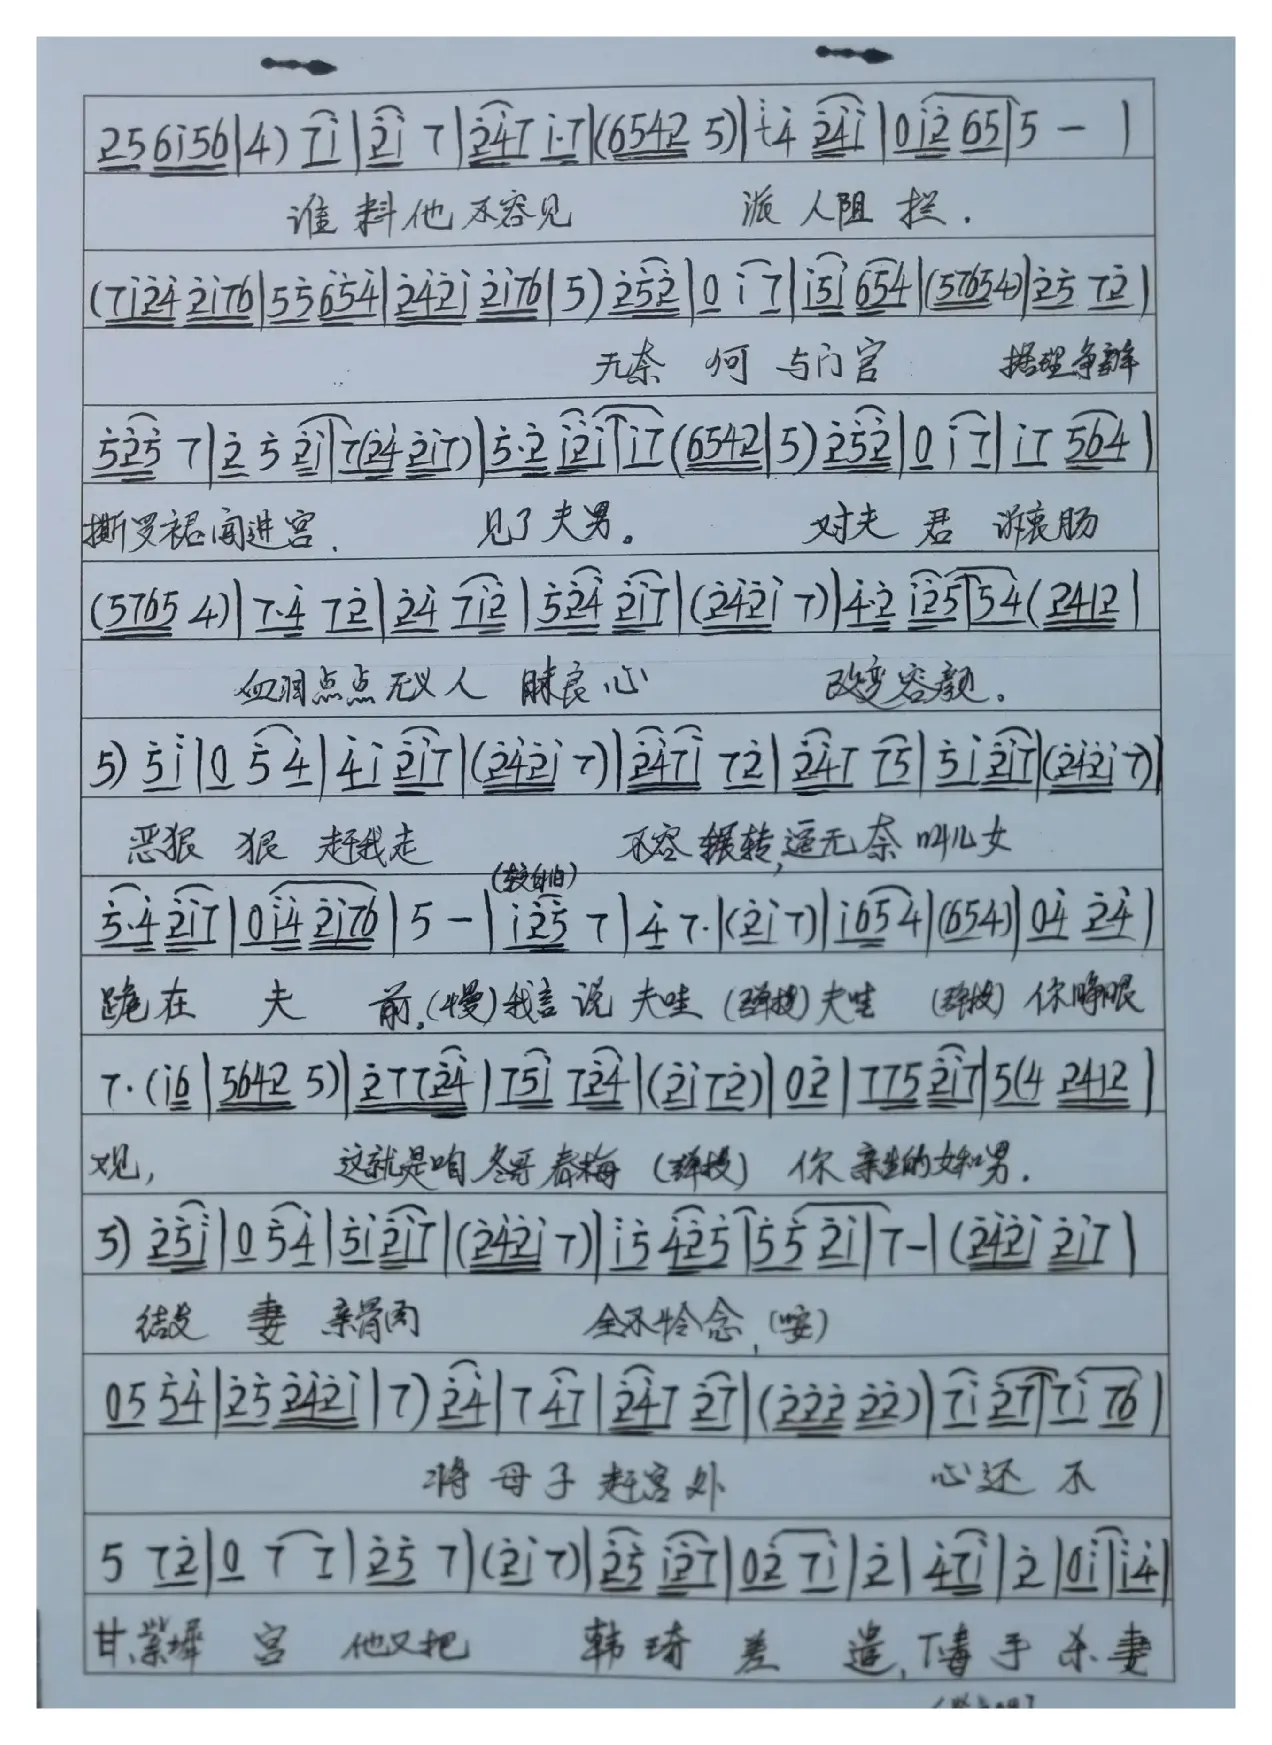 256i56|4) 7i|2i 7|247 i·7|(6542 5)|i4 24i|0i2 65|5 - |
谁料他不容见 派人阻拦.
(7i24 2i76|55654|242i 2i76|5) 252|0 i7|i5i 654|(57654)|25 72|
无奈何与门宫 据理争辩
525 7|2 5 2i|7(24 2i7)|5·2 i2i|i7(6542|5) 252|0 i7|i7 564|
撕罗裙闯进宫. 见了夫男。 对夫君诉衷肠
(5765 4)|7·4 72|24 7i2|524 2i7|(242i 7)|4·2 i25|54(2412|
血泪点点无义人 昧良心 改变容颜。
5) 5i|0 54|4i 2i7|(242i 7)|247i 72|247 75|5i 2i7|(242i 7)|
恶狠狠赶我走 不容辗转,逼无奈叫儿女
(较自由)
5·4 2i7|0i4 2i76|5 -|i25 7|4 7·|(2i 7)|i65 4|(654)|04 24|
跪在夫前.(慢)我言说夫哇(弹拨)夫哇(弹拨)你睁眼
7·(i6|5642 5)|27724|75i 724|(2i72)|02|775 2i7|5(4 2412|
观, 这就是咱冬哥春梅(弹拨)你亲生的女和男.
5) 25i|0 54|5i 2i7|(242i 7)|i5 425|55 2i|7-|(242i 2i7|
结发妻亲骨肉 全不怜念,(哎)
05 54|25 242i|7) 24|7 47|247 27|(222 22)|7i 27|7i 76|
将母子赶宫外 心还不
5 72|0 77|25 7|(2i 7)|25 i27|02 7i|2|47i|2|0i|i4|
甘,紫墀宫他又把 韩琦差遣,下毒手杀妻